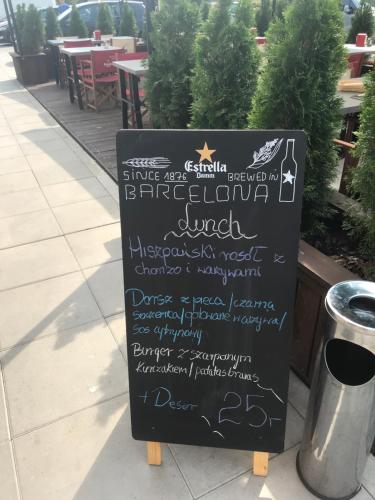 Estrella
Damm
SINCE 1876 BREWED IN
BARCELONA
Lunch
Hiszpański rosół z
chorizo i warzywami
Dorsz z pieca/czarna
soczewica/grillowane warzywa/
sos cytrynowy
Burger z szarpanym
kurczakiem/patatas bravas
+ Deser 25